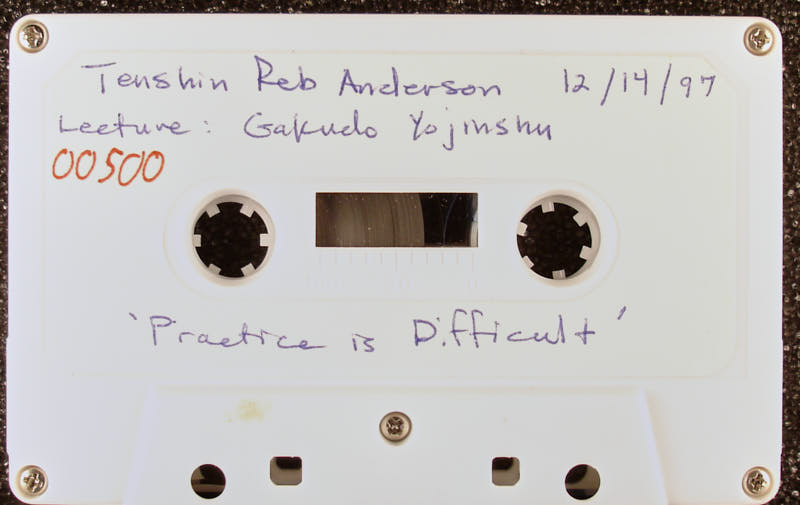 Tenshin Reb Anderson 12/14/97
Lecture: Gakudo Yojinshu
00500
'Practice is Difficult'